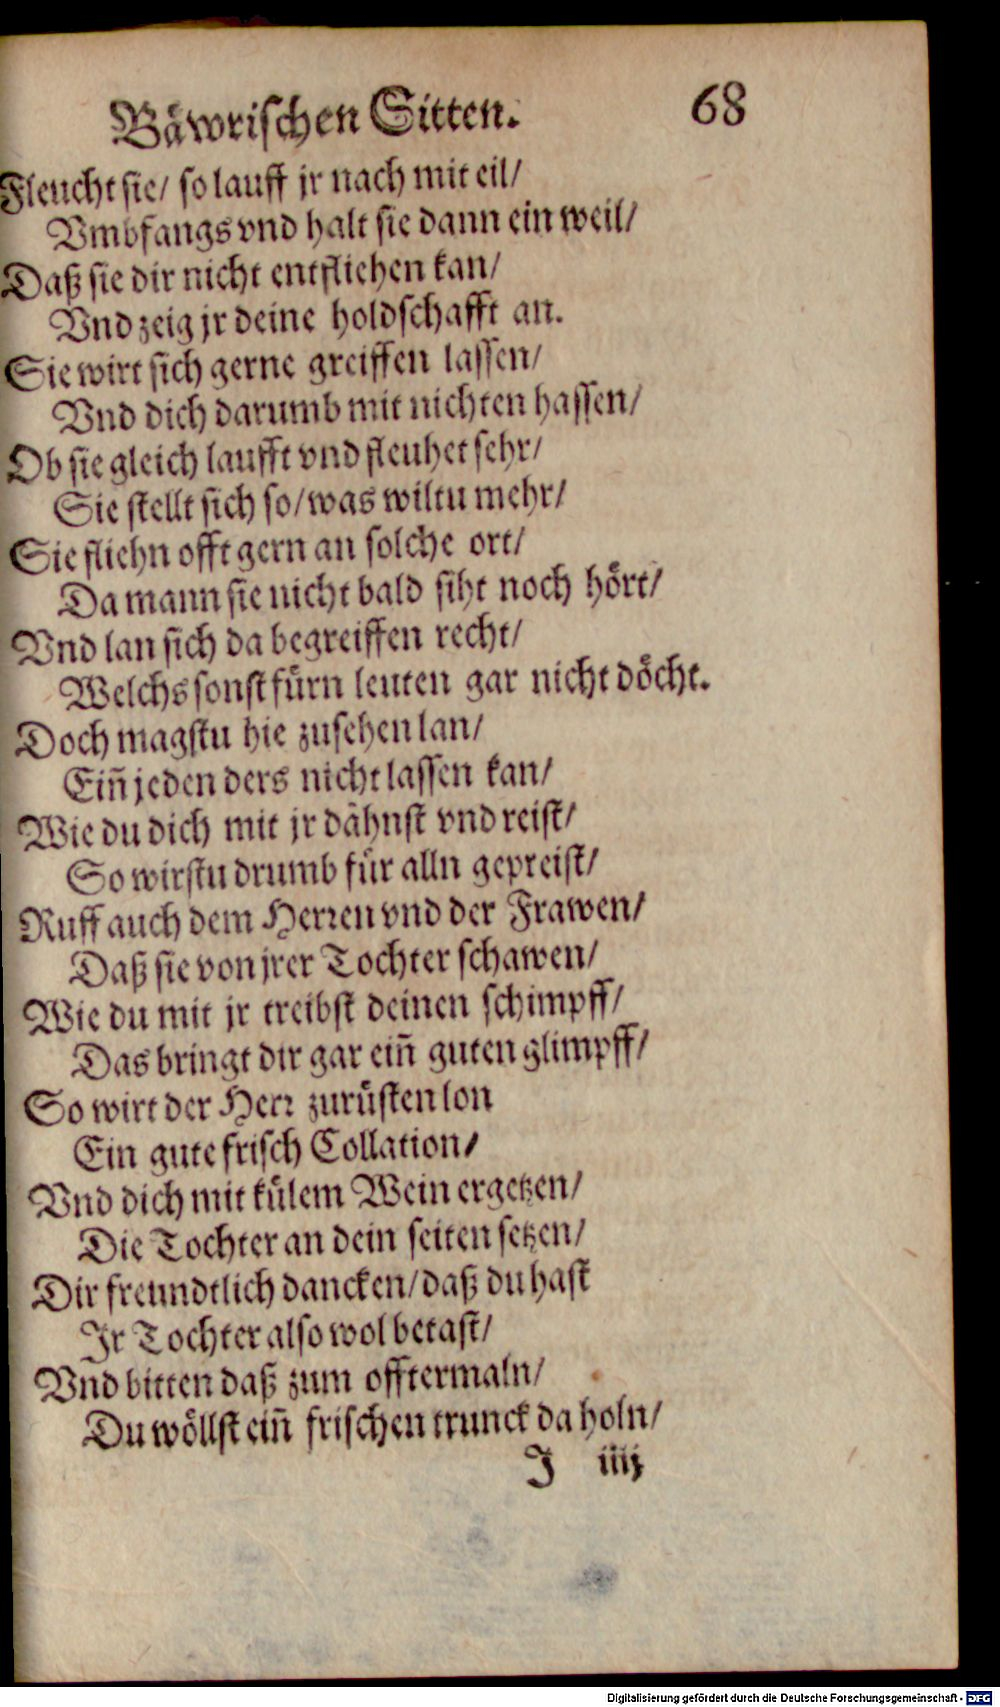 Bäwrischen Sitten. 68
Fleucht sie/ so lauff jr nach mit eil/
Vmbfangs vnd halt sie dann ein weil/
Daß sie dir nicht entfliehen kan/
Vnd zeig jr deine holdschafft an.
Sie wirt sich gerne greiffen lassen/
Vnd dich darumb mit nichten hassen/
Ob sie gleich laufft vnd fleuhet sehr/
Sie stellt sich so/ was wiltu mehr/
Sie fliehn offt gern an solche ort/
Da mann sie nicht bald siht noch hört/
Vnd lan sich da begreiffen recht/
Welchs sonst fürn leuten gar nicht döcht.
Doch magstu hie zusehen lan/
Eiñ jeden ders nicht lassen kan/
Wie du dich mit jr dähnst vnd reist/
So wirstu drumb für alln gepreist/
Ruff auch dem Herren vnd der Frawen/
Daß sie von jrer Tochter schawen/
Wie du mit jr treibst deinen schimpff/
Das bringt dir gar eiñ guten glimpff/
So wirt der Herr zurüsten lon
Ein gute frisch Collation/
Vnd dich mit külem Wein ergetzen/
Die Tochter an dein seiten setzen/
Dir freundtlich dancken/ daß du hast
Jr Tochter also wol betast/
Vnd bitten daß zum offtermaln/
Du wöllst eiñ frischen trunck da holn/
J iiij
Digitalisierung gefördert durch die Deutsche Forschungsgemeinschaft - DFG